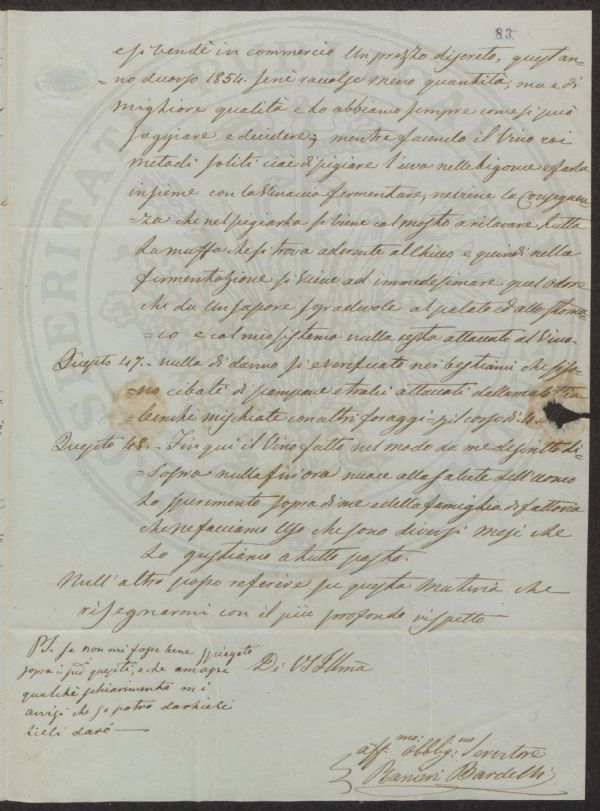 83.
e si vende in commercio Un prezzo discreto, quest'an=
=no decorso 1854. se ne raccolse meno quantità, ma e di
migliore qualità e lo abbiamo sempre come si può
saggiare e decidere; mentre facendo il Vino coi
metodi soliti cioe di pigiare l'uva nelle bigonce e farla
insieme con la Vinaccia fermentare, ne viene la Consegnen
=za che nel pigiarla si viene col mosto a rilavare tutta
la muffa che si trova aderente al chicco e quindi nella
fermentazione si viene ad immedesimare quel odore
che da Un sapore sgradevole al palato ed allo stoma=
=co e col mio sistema nulla resta attaccato al Vino.
Quesito 47. - nulla di danno si è verificato nei bestiami che si so=
=no cibati di pampane e tralci attaccati dalla malattia
benche mischiate con altri foraggi = pil corso di 4.
Quesito 48. - Fin qui il Vino fatto nel modo da me descritto di=
=sopra nulla fin'ora nuoce alla salute dell'Uomo
Lo sperimento sopra di me e della famiglia di fattoria
che ne facciamo Uso che sono diversi mesi che
Lo gustiamo a tutto pasto.
Null'altro posso referire su questa materia che
risegnarmi con il più profondo rispetto
Di VS Illma
PS. Se non mi fosse bene spiegato
sopra i sud.i quesiti, e che amasse
qualche schiarimento mi
avvisi che se potrò darhielei
lieli daró
aff:mo obblig:mo Servitore
Ranieri Bardelli
PROSPERITATI PUBLICAE